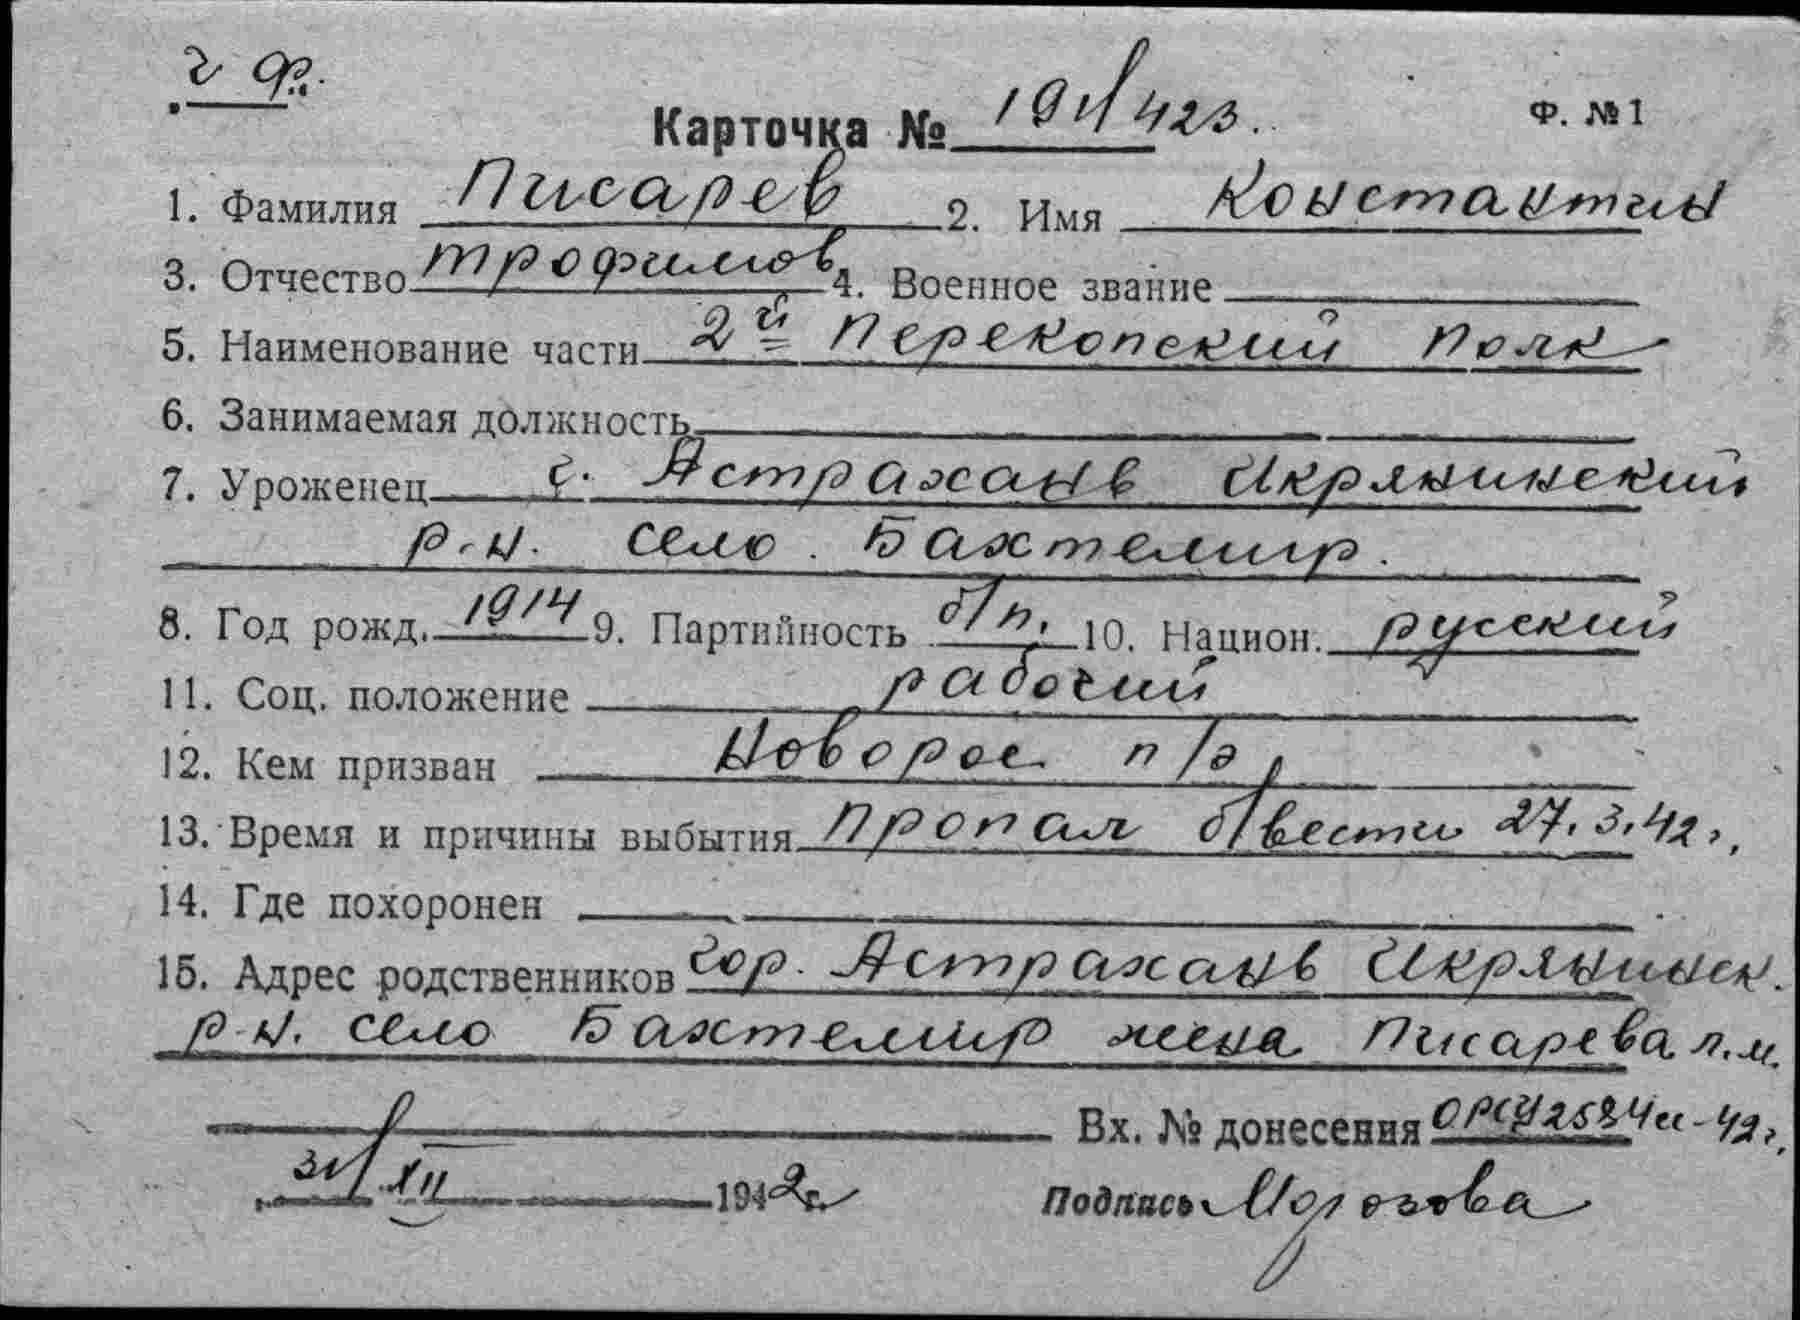 ч Ф.
Карточка № 1911/423. Ф. №1
1. Фамилия Писарев 2. Имя Константин
3. Отчество Трофимов 4. Военное звание
5. Наименование части 2й Перекопский Полк
6. Занимаемая должность
7. Уроженец г. Астрахань Икрянинский
р-н. село. Бахтемир.
8. Год рожд. 1914 9. Партийность б/п. 10. Национ. русский
11. Соц. положение рабочий
12. Кем призван Новорос п/э
13. Время и причины выбытия Пропал б/вести 27.3.42г.
14. Где похоронен
15. Адрес родственников гор. Астрахань Икрянинск.
р-н. село Бахтемир жена Писарева п.м.
Вх. № донесения 2584 -42г.
31/XII 1942г. Подпись Морозова